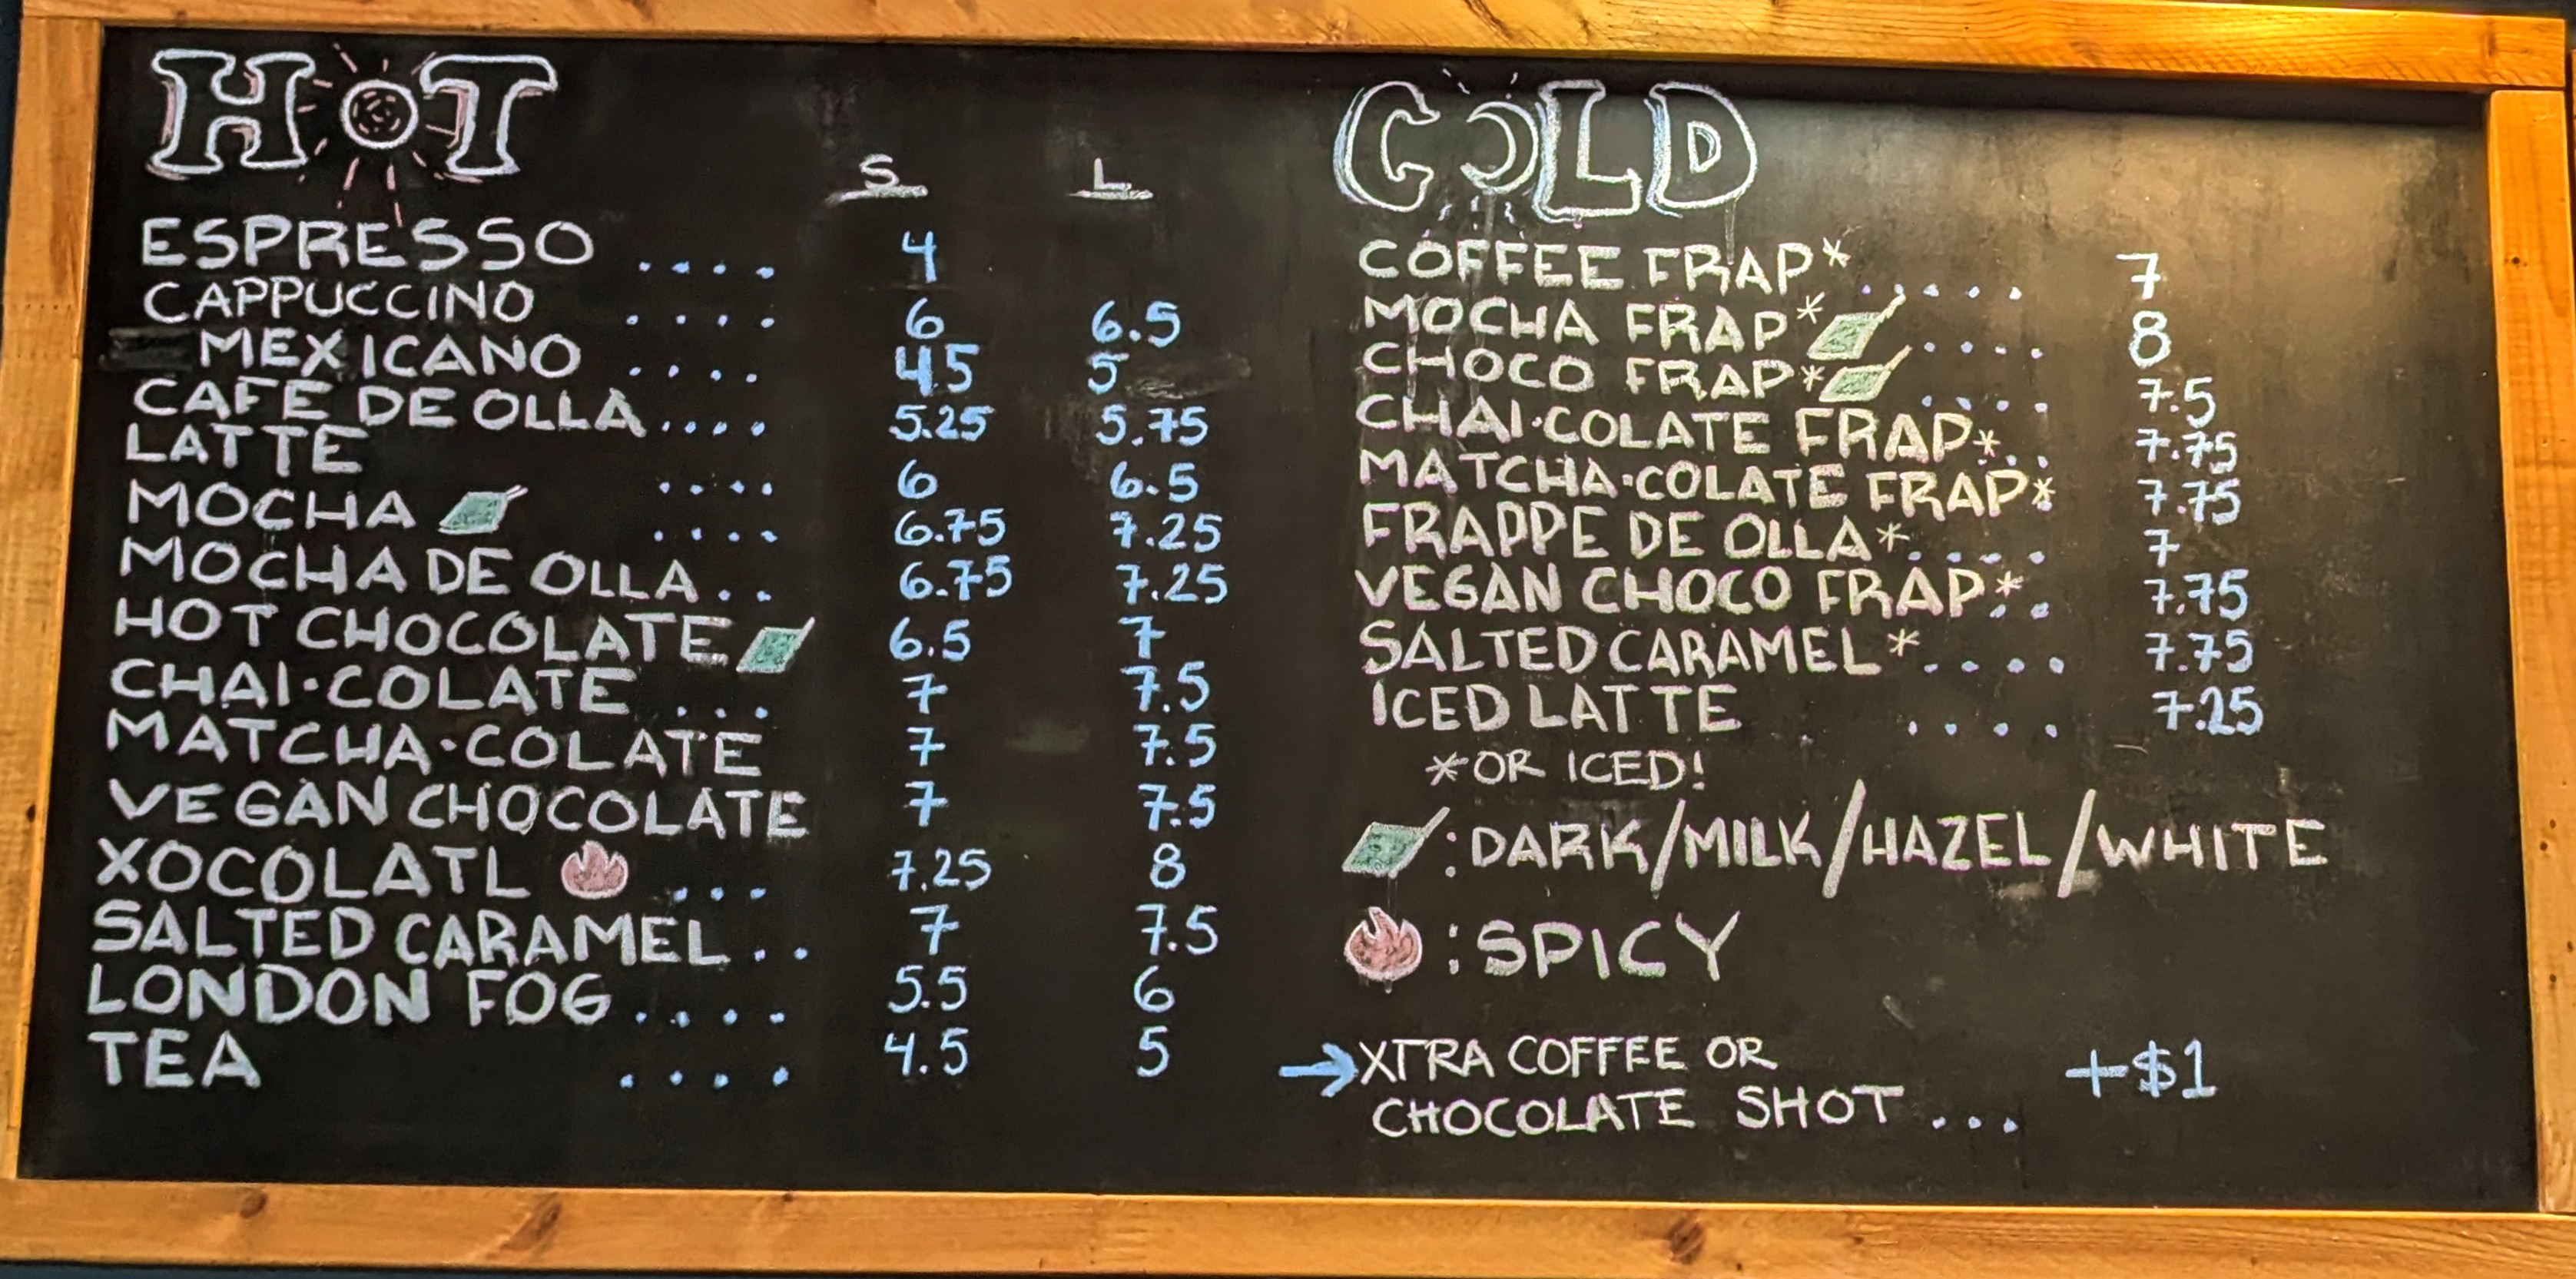 HOT
S L
ESPRESSO .... 4
CAPPUCCINO .... 6 6.5
MEXICANO .... 4.5 5
CAFE DE OLLA .... 5.25 5.75
LATTE .... 6 6.5
MOCHA .... 6.75 7.25
MOCHA DE OLLA .. 6.75 7.25
HOT CHOCOLATE 6.5 7
CHAI·COLATE ... 7 7.5
MATCHA·COLATE 7 7.5
VEGAN CHOCOLATE 7 7.5
XOCOLATL ... 7.25 8
SALTED CARAMEL .. 7 7.5
LONDON FOG .... 5.5 6
TEA .... 4.5 5
COLD
COFFEE FRAP* ..... 7
MOCHA FRAP* .... 8
CHOCO FRAP* .... 7.5
CHAI·COLATE FRAP* .. 7.75
MATCHA·COLATE FRAP* 7.75
FRAPPE DE OLLA* .... 7
VEGAN CHOCO FRAP* .. 7.75
SALTED CARAMEL* .... 7.75
ICED LATTE .... 7.25
*OR ICED!
: DARK/MILK/HAZEL/WHITE
: SPICY
→ XTRA COFFEE OR +$1
CHOCOLATE SHOT ...